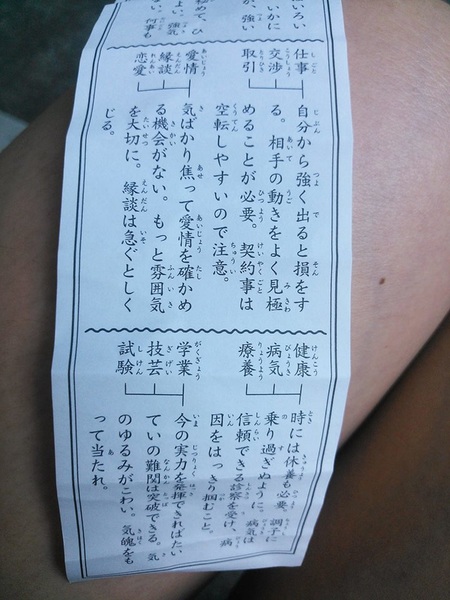 いろい
いかに
が、強い
めて、ひ
よい。強気
何事も
仕事
交渉
取引
自分から強く出ると損をす
る。相手の動きをよく見極
めることが必要。契約事は
空転しやすいので注意。
愛情
縁談
恋愛
気ばかり焦って愛情を確かめ
る機会がない。もっと雰囲気
を大切に。縁談は急ぐとしく
じる。
健康
病気
療養
時には休養も必要。調子に
乗り過ぎぬように。病気は
信頼できる診察を受け、病
因をはっきり掴むこと。
学業
技芸
試験
今の実力を発揮できればたい
ていの難関は突破できる。気
のゆるみがこわい。気魄をも
って当たれ。